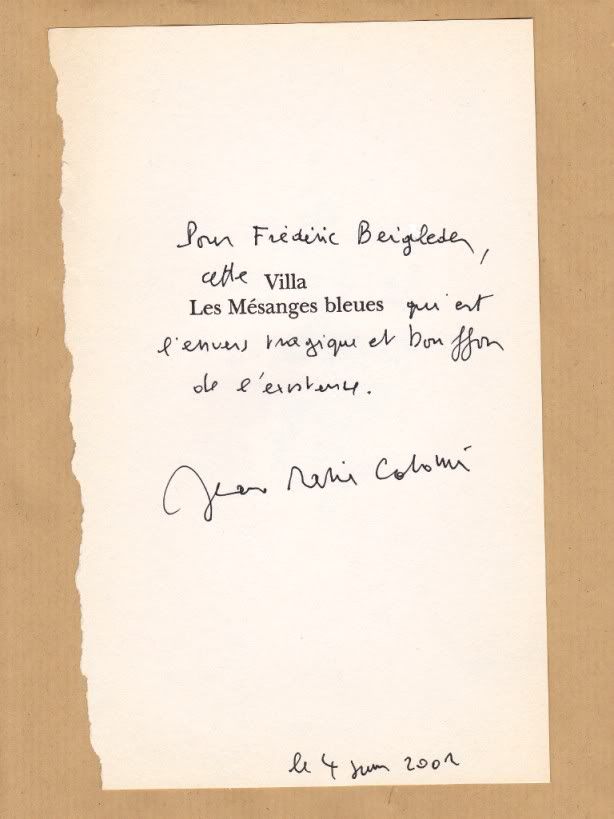 Pour Frédéric Beigbeder,
cette Villa
Les Mésanges bleues qui est
l'envers tragique et bouffon
de l'existence.
Jean Marie Catonné
le 4 juin 2001